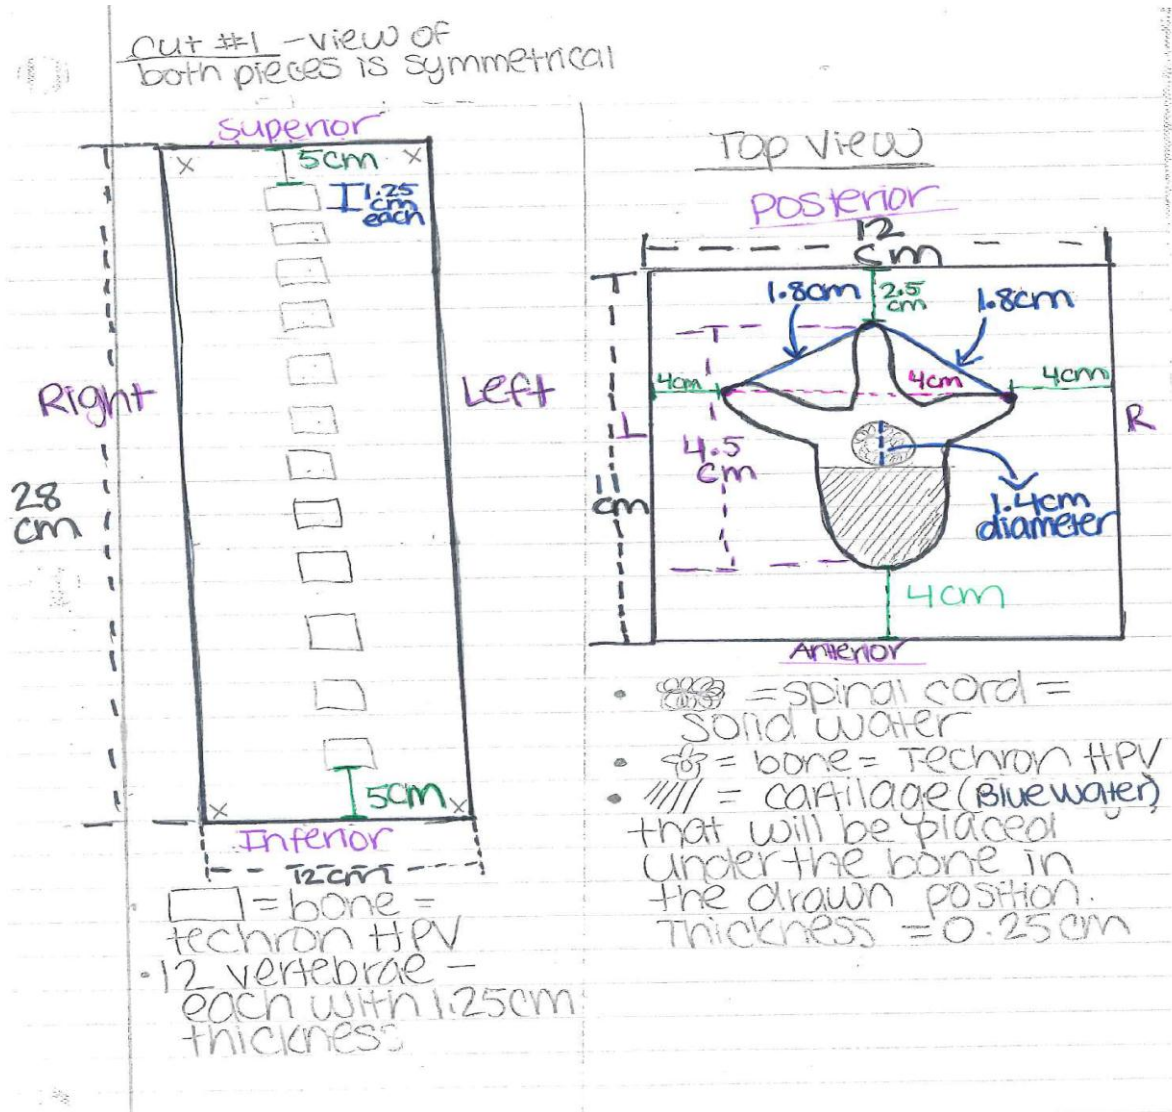 cut #1 - view of
both pieces is symmetrical
Superior
x
x
5cm
1.25
cm
each
Right
Left
28
cm
5cm
x
x
Inferior
12cm
= bone =
techron HPV
• 12 vertebrae -
each with 1.25cm
thickness
Top View
Posterior
12
cm
1.8cm
2.5
cm
1.8cm
4cm
4cm
4cm
L
R
4.5
cm
11
cm
1.4cm
diameter
4cm
Anterior
• = spinal cord =
solid water
• = bone = Techron HPV
• //// = cartilage (Blue water)
that will be placed
under the bone in
the drawn position.
Thickness = 0.25cm